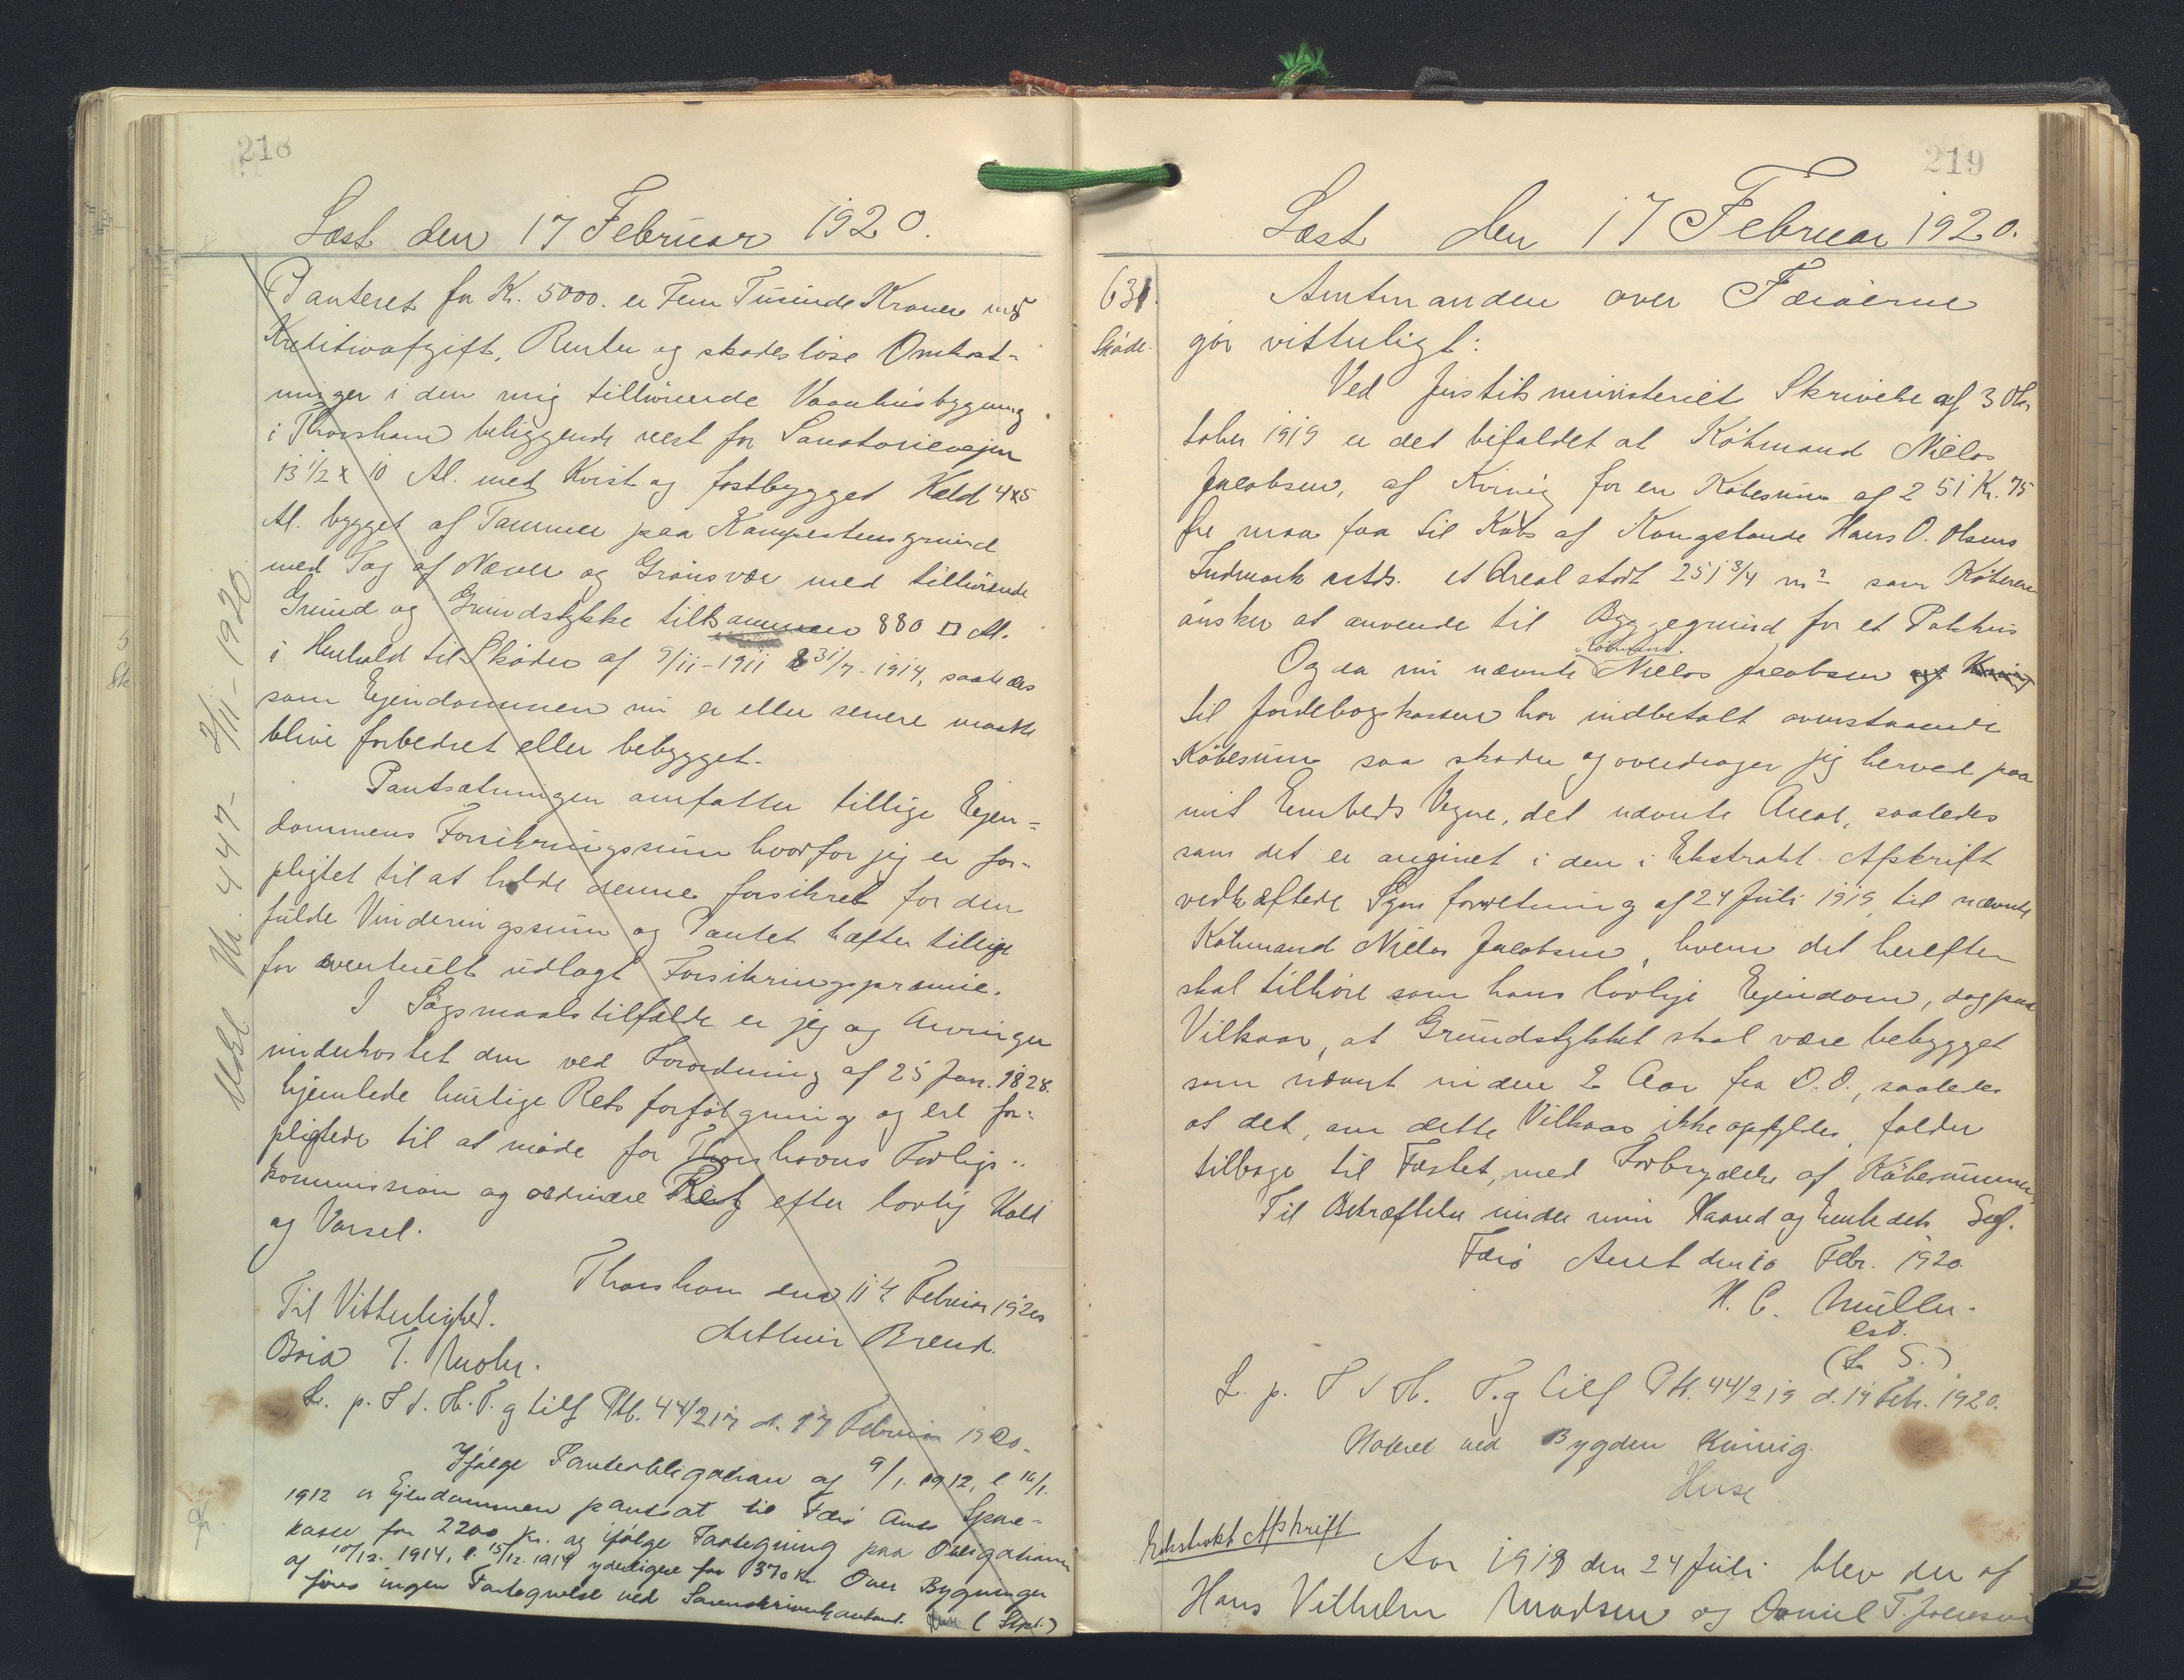 218
Læst den 17 Februar 1920.
Panteret for Kr. 5000. er Fem Tusinde Kroner med
Kreditivafgift, Renter og skadesløse Omkost-
ninger i den mig tilhørende Vaanhusbygning
i Thorshavn beliggende vest for Sanatorievejen
13 1/2 x 10 Al. med Kvist og fastbygget Kæld 4x5
Al. bygget af Tømmer paa Kampestensgrund
med Tag af Næver og Grønsvær med tilhørende
Grund og Grundstykke tilsammen 880 □ Al.
i Henhold til Skøder af 9/11-1911 & 31/7-1914, saaledes
som Ejendommen nu er eller senere maatte
blive forbedret eller bebygget.
Pantsætningen omfatter tillige Ejen=
dommens Forsikringssum hvorfor jeg er for-
pligtet til at holde denne forsikret for den
fulde Vurderingssum og Pantet hæfter tillige
for eventuelt udlagt Forsikringspræmie.
I Søgsmaalstilfælde er jeg og Arvinger
underkastet den ved Forordning af 25 Jan. 1828.
hjemlede hurtige Retsforfølgning og ere for-
pligtede til at møde for Thorshavns Forligs-
kommission og ordinære Ret efter lovlig Kald
og Varsel.
Thorshavn den 14 Februar 1920
Til Vitterlighed.
Arthur Brend.
Boia T. Mohr.
L. p. S f. H. T. g tilf Ptb. 44/217 d. 17 Februar 1920.
Ifølge Panteobligation af 9/1. 1912, l. 16/1.
1912 er Ejendommen pantsat til Færø Amts Spare-
kasse for 2200 Kr. og ifølge Paategning paa Obligationen
af 10/12. 1914, l. 15/12. 1914 yderligere for 370 Kr. Over Bygninger
føres ingen Fortegnelse ved Sorenskriverkontoret. (Stpl.)
Udsl. Nr. 447- 2/11-1920.
219
Læst den 17 Februar 1920.
631.
Skøde.
Amtmanden over Færøerne
gør vitterligt:
Ved Justitsministeriet Skrivelse af 3 Ok
tober 1919 er det bifaldet at Købmand Niclas
Jacobsen, af Kvivig for en Købesum af 251 Kr. 75
Øre maa faa til Købs af Kongslande Hans O. Olsens
Indmark sstds. et Areal stort 251 3/4 m² som Køberen
ønsker at anvende til Byggegrund for et Pakhus
Og da nu nævnte Købmand Niclas Jacobsen af Kvivig
til Jordebogskassen har indbetalt ovenstaaende
Købesum saa skøder og overdrager jeg herved paa
mit Embeds Vegne, det nævnte Areal, saaledes
som det er angivet i den i Ekstrakt Afskrift
vedhæftede Synsforretning af 24 Juli 1919, til nævnte
Købmand Niclas Jacobsen, hvem det herefter
skal tilhøre som hans lovlige Ejendom, dog paa
Vilkaar, at Grundstykket skal være bebygget
som nævnt inden 2 Aar fra D.D., saaledes
at det, om dette Vilkaar ikke opfyldes, falder
tilbage til Fæstet, med Forbrydelse af Købesummen,
Til Bekræftelse under min Haand og Embedets Segl.
Færø Amt den 10 Febr. 1920.
H. C. Müller.
cst.
(L. S.)
L. p. S f H. T. g tilf Ptb. 44/219 d. 17 Febr. 1920.
Noteret ved Bygden Kvivig.
Ekstrakt Afskrift
Aar 1919 den 24 Juli blev der af
Hans Vilhelm Madsen og Daniel T. Joensen